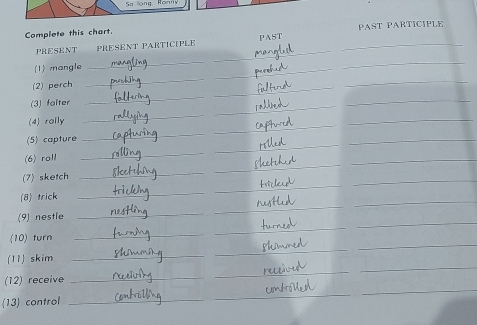 So long, Ronny
Complete this chart.
PRESENT PRESENT PARTICIPLE PAST PAST PARTICIPLE
(1) mangle mangling mangled
(2) perch perching perched
(3) falter faltering faltered
(4) rally rallying rallied
(5) capture capturing captured
(6) roll rolling rolled
(7) sketch sketching sketched
(8) trick tricking tricked
(9) nestle nestling nestled
(10) turn turning turned
(11) skim skimming skimmed
(12) receive receiving received
(13) control controlling controlled